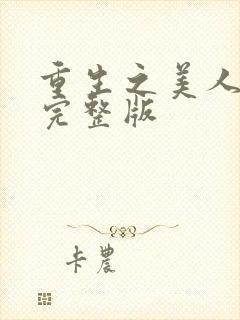 重生之美人
完整版
卡农